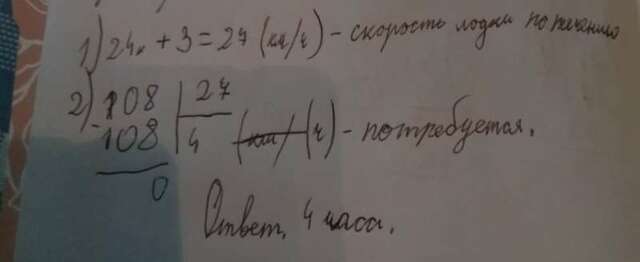 1) 24 + 3 = 27 (км/ч) - скорость лодки по течению
2) 108 | 27
108 | 4 (км) (ч) - потребуется.
0
Ответ, 4 часа.